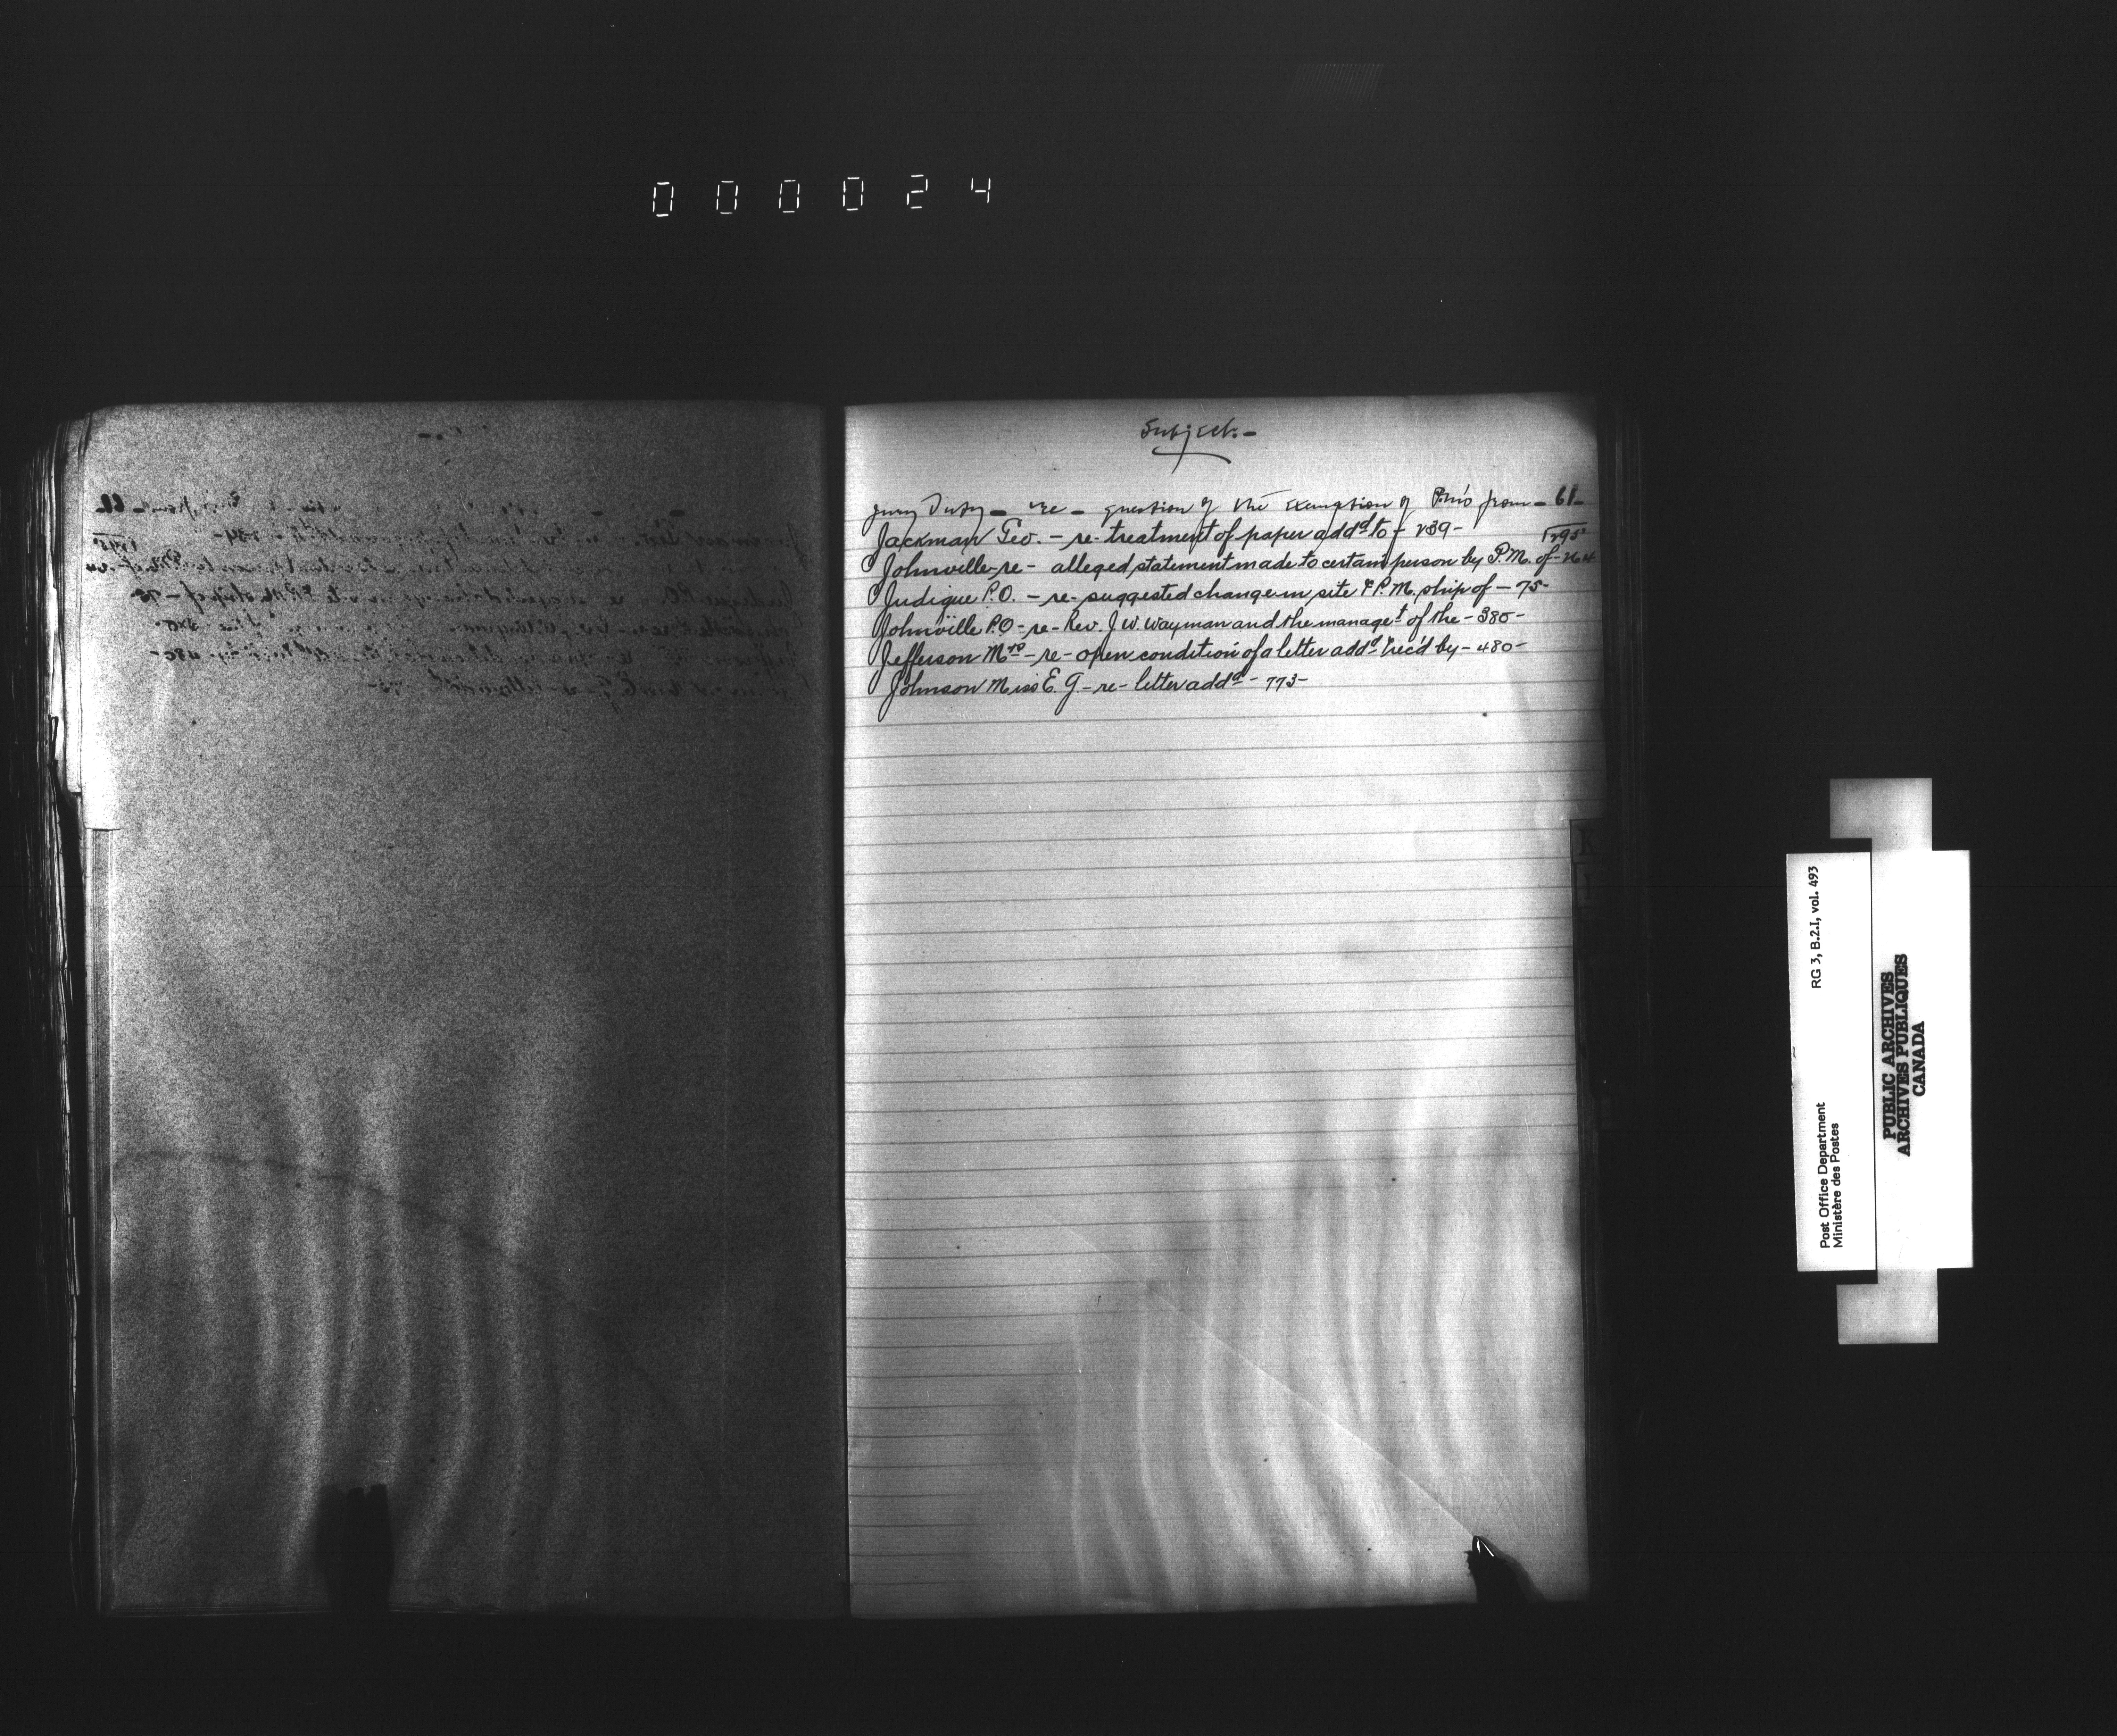 000024
Subject.-
Jury Duty - re - question of the exemption of P.M's from - 61-
Jackman Geo. - re - treatment of paper add^d to - 239-
295
Johnville - re - alleged statement made to certain person by P.M. of - 264
Judique P.O. - re - suggested change in site & P.M. ship of - 75-
Johnville P.O - re - Rev. J. W. Wayman and the manage^t of the - 380-
Jefferson M^rs - re - open condition of a letter add^d & rec'd by - 480-
Johnson Miss E. G. - re - letter add^d - 773-
K
RG 3, B.2.I, vol. 493
Post Office Department
Ministère des Postes
PUBLIC ARCHIVES
ARCHIVES PUBLIQUES
CANADA